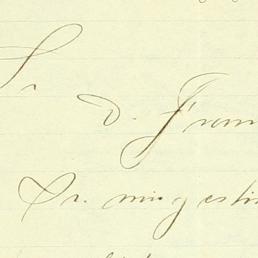 Sr
D. Fran
Sr. mio y esti